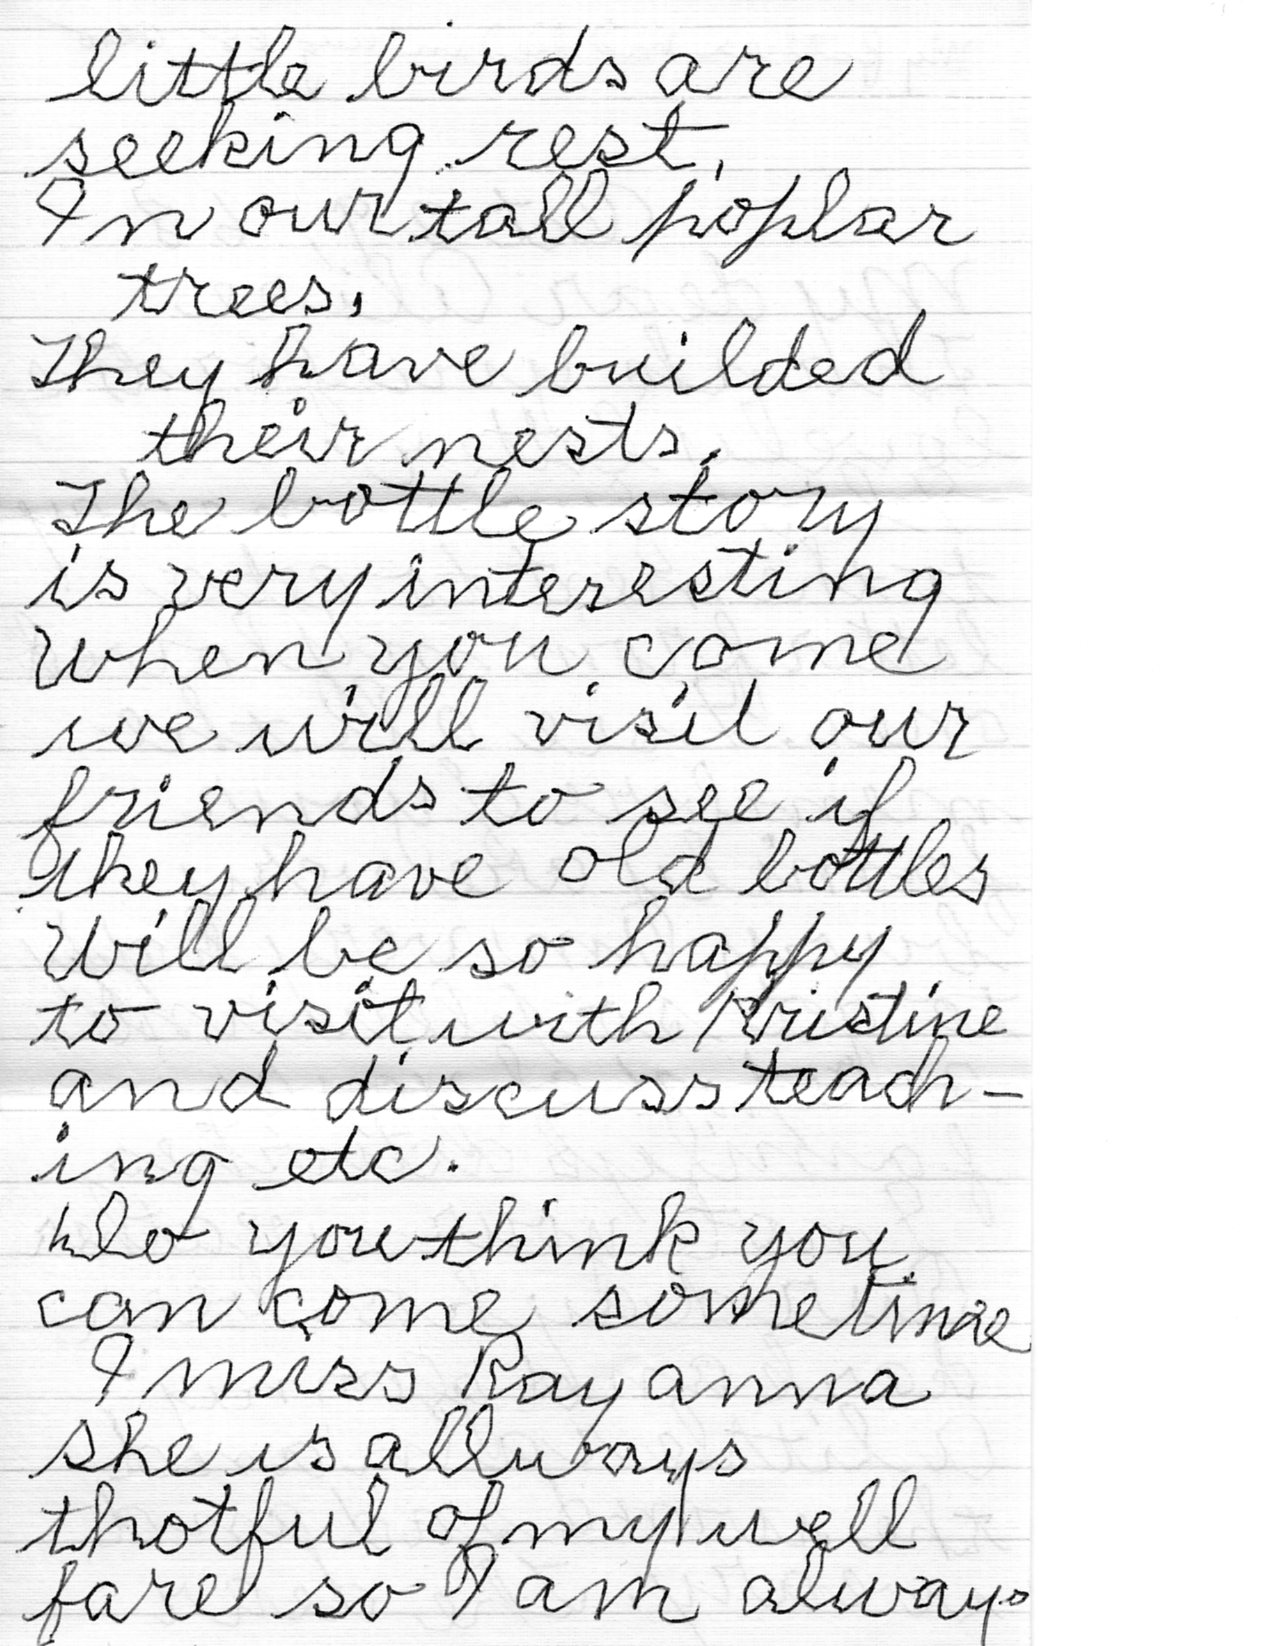 little birds are
seeking rest,
In our tall poplar
trees,
They have builded
their nests.
The bottle story
is very interesting
When you come
we will visit our
friends to see if
they have old bottles
Will be so happy
to visit with Kristine
and discuss teach-
ing etc.
Do you think you
can come sometime
I miss Rayanna
she is allways
thotful of my well
fare so I am always